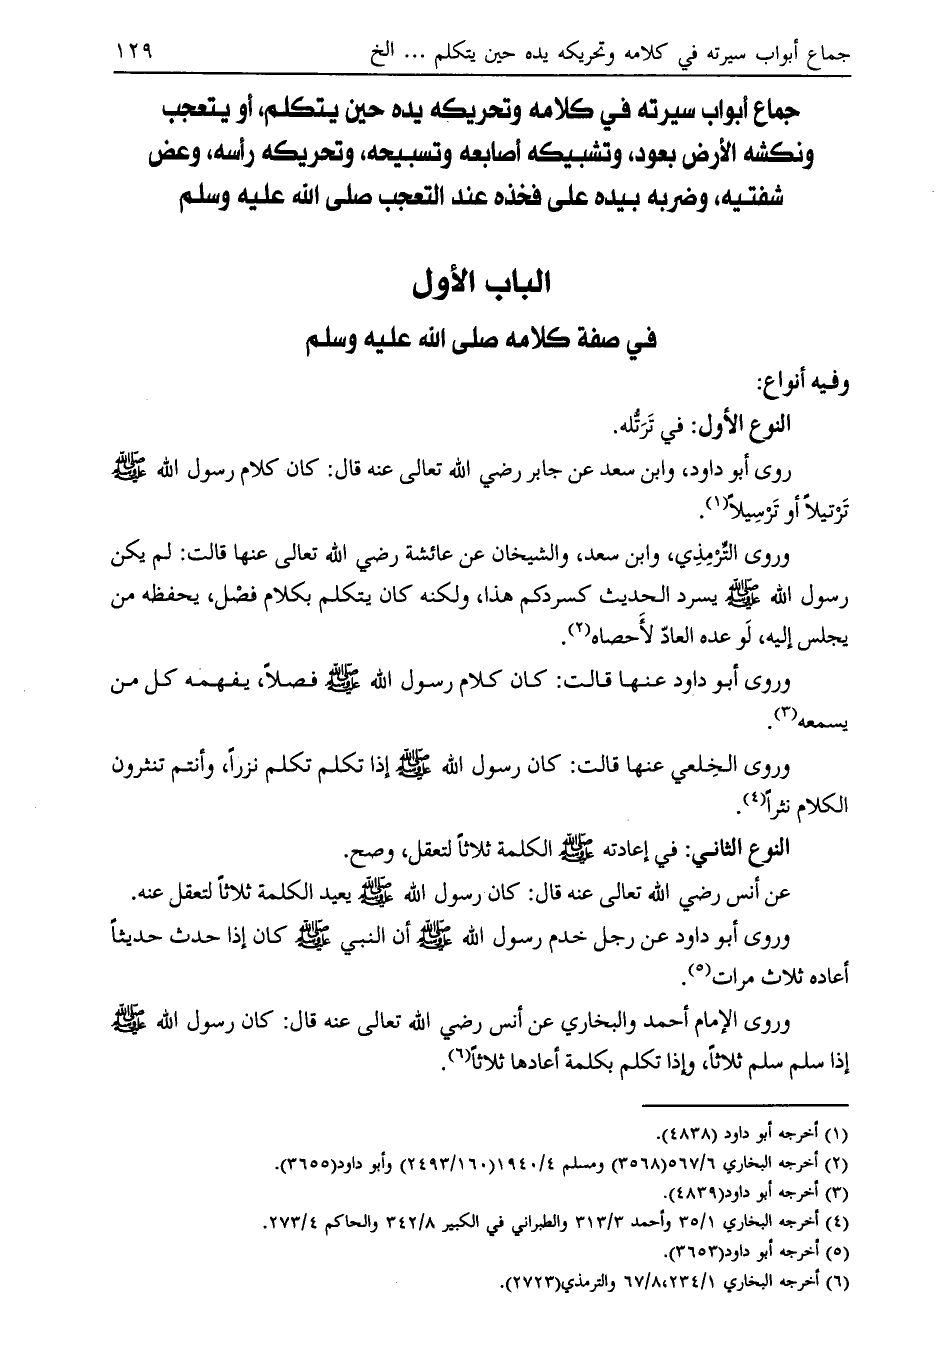 جماع أبواب سيرته في كلامه وتحريكه يده حين يتكلم ... الخ ١٢٩
جماع أبواب سيرته في كلامه وتحريكه يده حين يتكلم، أو يتعجب
ونكشه الأرض بعود، وتشبيكه أصابعه وتسبيحه، وتحريكه رأسه، وعض
شفتيه، وضربه بيده على فخذه عند التعجب صلى الله عليه وسلم
الباب الأول
في صفة كلامه صلى الله عليه وسلم
وفيه أنواع:
النوع الأول: في تَرَتُّله.
روى أبو داود، وابن سعد عن جابر رضي الله تعالى عنه قال: كان كلام رسول الله ﷺ
تَرْتيلاً أو تَرْسِيلاً(١).
وروى التِّرْمِذي، وابن سعد، والشيخان عن عائشة رضي الله تعالى عنها قالت: لم يكن
رسول الله ﷺ يسرد الحديث كسردكم هذا، ولكنه كان يتكلم بكلام فصْل، يحفظه من
يجلس إليه، لَو عده العادّ لأَحصاه(٢).
وروى أبو داود عنها قالت: كان كلام رسول الله ﷺ فصلاً، يفهمه كل من
يسمعه(٣).
وروى الخِلعي عنها قالت: كان رسول الله ﷺ إذا تكلم تكلم نزراً، وأنتم تنثرون
الكلام نثراً(٤).
النوع الثاني: في إعادته ﷺ الكلمة ثلاثاً لتعقل، وصح.
عن أنس رضي الله تعالى عنه قال: كان رسول الله ﷺ يعيد الكلمة ثلاثاً لتعقل عنه.
وروى أبو داود عن رجل خدم رسول الله ﷺ أن النبي ﷺ كان إذا حدث حديثاً
أعاده ثلاث مرات(٥).
وروى الإمام أحمد والبخاري عن أنس رضي الله تعالى عنه قال: كان رسول الله ﷺ
إذا سلم سلم ثلاثاً، وإذا تكلم بكلمة أعادها ثلاثاً(٦).
(١) أخرجه أبو داود (٤٨٣٨).
(٢) أخرجه البخاري ٥٦٧/٦(٣٥٦٨) ومسلم ١٩٤٠/٤(٢٤٩٣/١٦٠) وأبو داود(٣٦٥٥).
(٣) أخرجه أبو داود(٤٨٣٩).
(٤) أخرجه البخاري ٣٥/١ وأحمد ٣١٣/٣ والطبراني في الكبير ٣٤٢/٨ والحاكم ٢٧٣/٤.
(٥) أخرجه أبو داود(٣٦٥٣).
(٦) أخرجه البخاري ٢٣٤/١،‏٦٧/٨ والترمذي(٢٧٢٣).